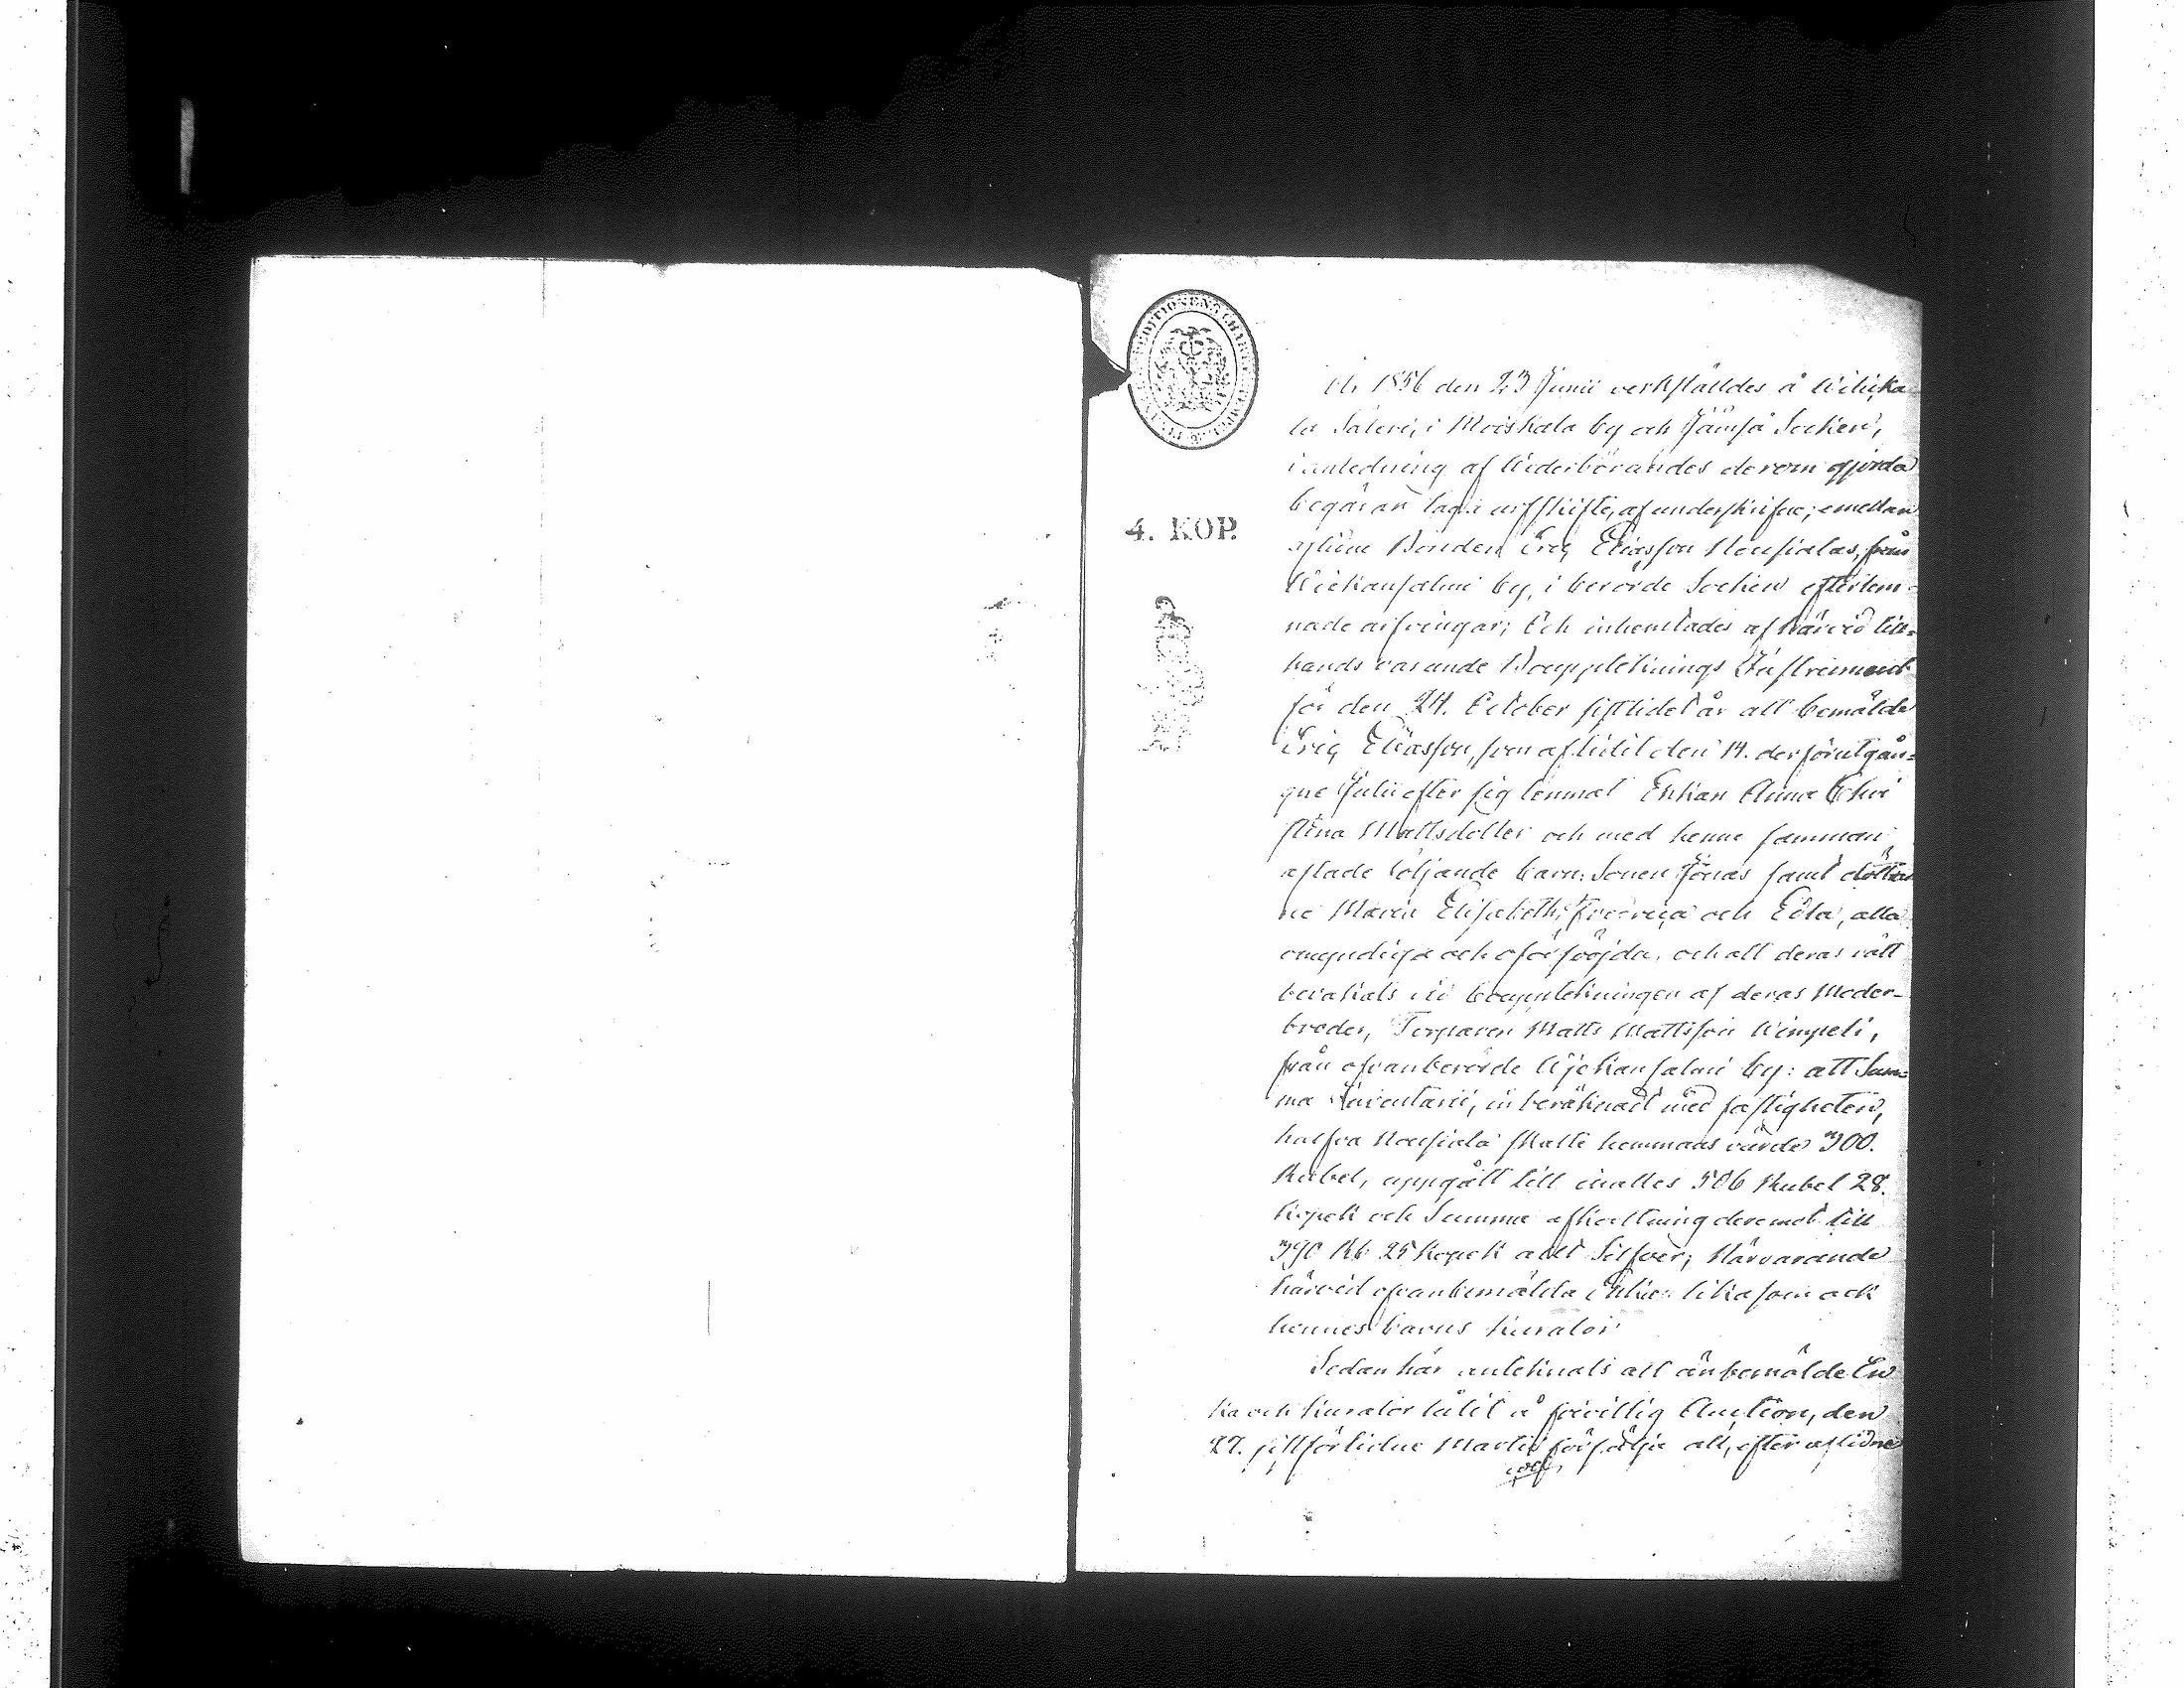 År 1856 den 23 Junii verkställdes å Wihika
la Säteri, i Moiskala by och Jämsä Socken,
i anledning af Wederbörandes derom gjorda
begäran laga arfskifte, af underskrifne; emellan
aflidne Bonden Eriq Eliasson Housialas, från
by, i berörde Socken efterlem-
nade arfvingar; Och inhemtades af härvid till-
hands varande Bouppteknings Instrument
för den 24. October sistlidet år att bemälde
Eriq Eliasson, som aflidit den 14. derförutgån-
gne Julii efter sig lemnat Enkan Anna Chri
stina Mattsdotter och med henne samman
aflade följande barn: Sonen Jonas samt döttrar
ne Maria Elisabeth, Fredrica och Edla, alla
omyndiga och oförsörjda, och att deras rätt
bevakats vid bouppteckningen af deras Moder-
broder, Torparen Matts Mattsson Wimpeli,
från ofvanberörde by: att Sum-
ma Inventarii, inberäknadt med fastigheten,
halfva Housiala Skatte hemmans värde 300.
Rubel, uppgått till inalles 506 Rubel 28.
kopek och Summa afkortning deremot till
390 Rb 25 kopek allt Silfver; Närvarande
härvid ofvanbemälda Enka likasom ock
hennes barns kurator.
Sedan här anteknats att änbemälde En
ka och kurator låtit å frivillig Auction, den
27. sistförlidne Martii försälja all, efter aflidne